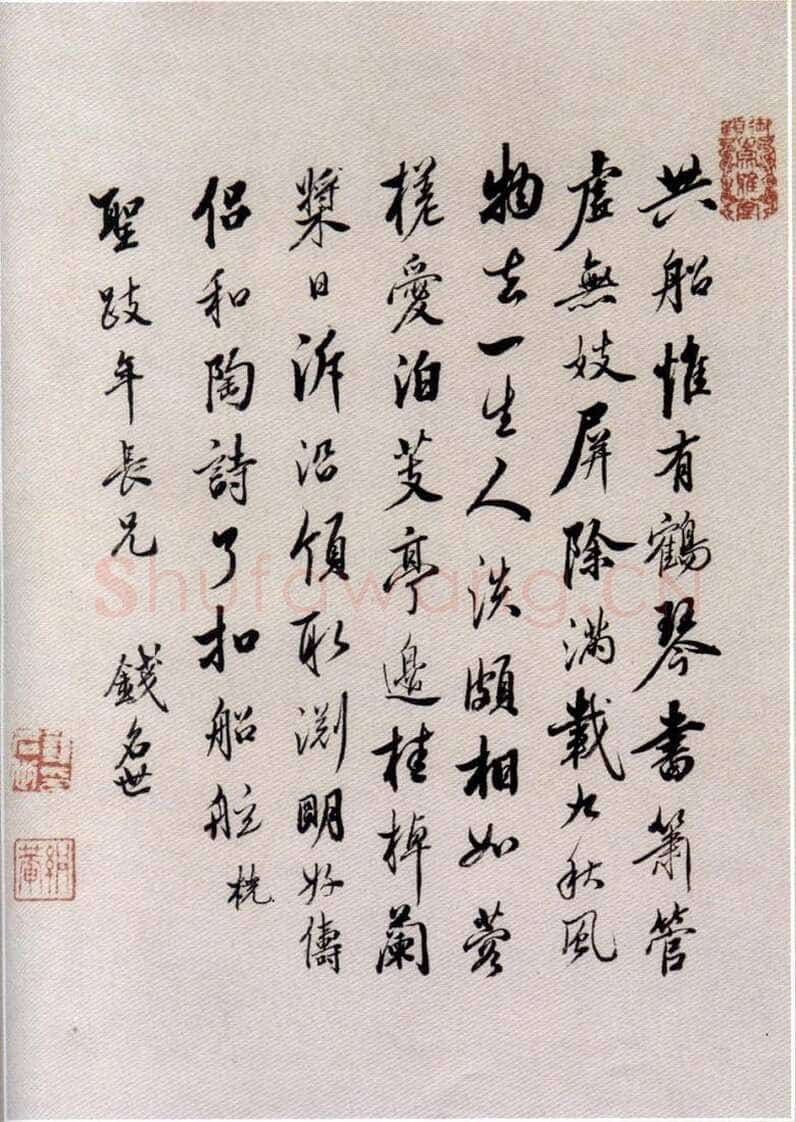 共船惟有鶴琴書簫管
虛無妓屏除滿載九秋風
物去一生人淡頗相如蓉
槎愛泊芰亭邊桂棹蘭
槳日泝沿領取渕明好儔
侶和陶詩了扣船舷
聖跂年長兄 錢名世
Shufawang.cn